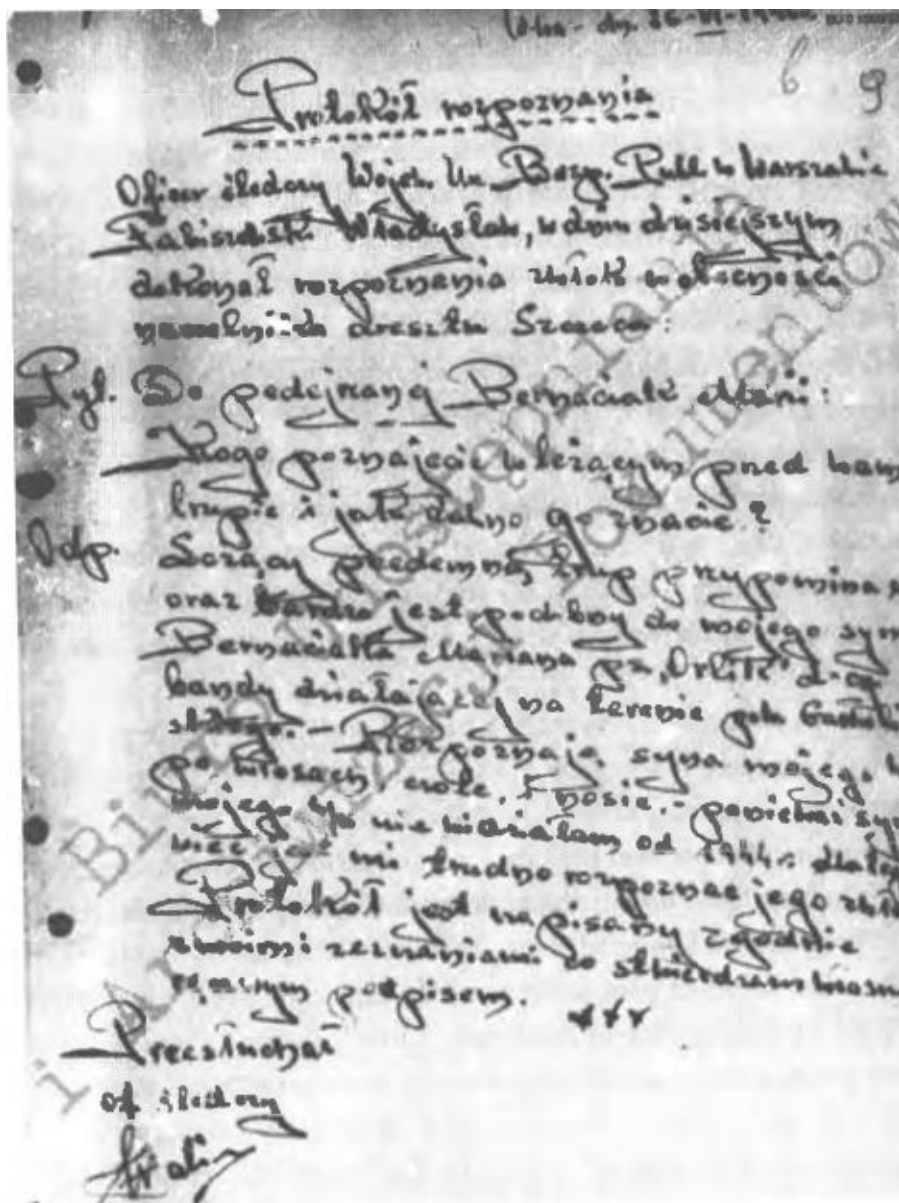 dn. 26-VI-1946
6 9
Protokół rozpoznania
Oficer śledczy Wojew. Urz. Bezp. Publ. w Warszawie
Władysław, w dniu dzisiejszym
dokonał rozpoznania zwłok w obecności
naczelnika aresztu
Pyt. Do podejrzanej Bernaciak Marii:
Kogo poznajecie w leżącym przed wami
trupie i jak dawno go znacie?
Odp. Leżący przedemną trup przypomina
oraz bardzo jest podobny do mojego syna
Bernaciaka Mariana ps. "Orlik" d-cy
bandy działającej na terenie
Rozpoznaję syna mojego
po włosach, czole, i nosie. - ponieważ syna
mojego nie widziałam od 1944 r. dlatego
więc jest mi trudno rozpoznać jego
Protokół jest napisany zgodnie
z moimi zeznaniami co stwierdzam własno
ręcznym podpisem. +++
Przesłuchał
of. śledczy
Biuro Udostępniania
i Archiwizacji Dokumentów